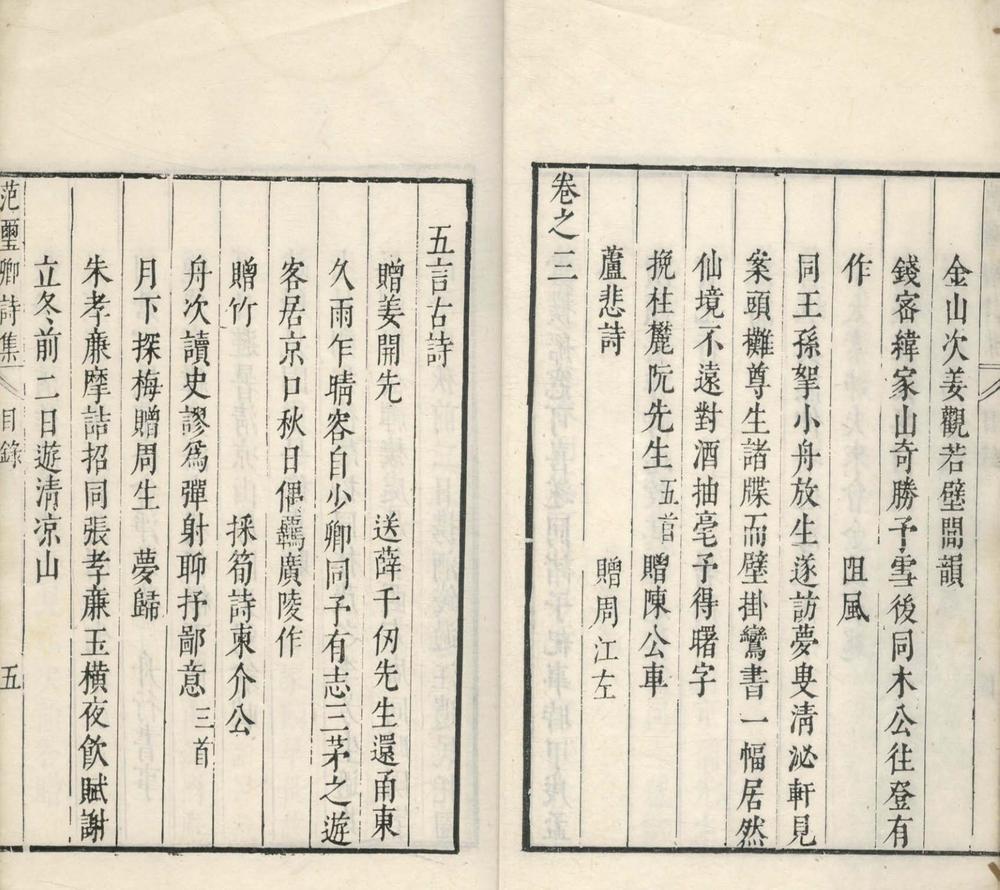 金山次姜觀若壁間韻
錢密緯家山奇勝予雪後同木公往登有
作　阻風
同王孫挐小舟放生遂訪夢叟清泌軒見
案頭攤尊生諸牒而壁掛鸞書一幅居然
仙境不遠對酒抽毫予得曙字
挽杜麓阮先生五首　贈陳公車
蘆悲詩　贈周江左
卷之三
五言古詩
贈姜開先　送薛千仞先生還甬東
久雨乍晴容自少卿同予有志三茅之遊
客居京口秋日偶羈廣陵作
贈竹　採筍詩柬介公
舟次讀史謬爲彈射聊抒鄙意三首
月下探梅贈周生　夢歸
朱孝廉摩詰招同張孝廉玉横夜飲賦謝
立冬前二日遊清凉山
范璽卿詩集　目錄　五